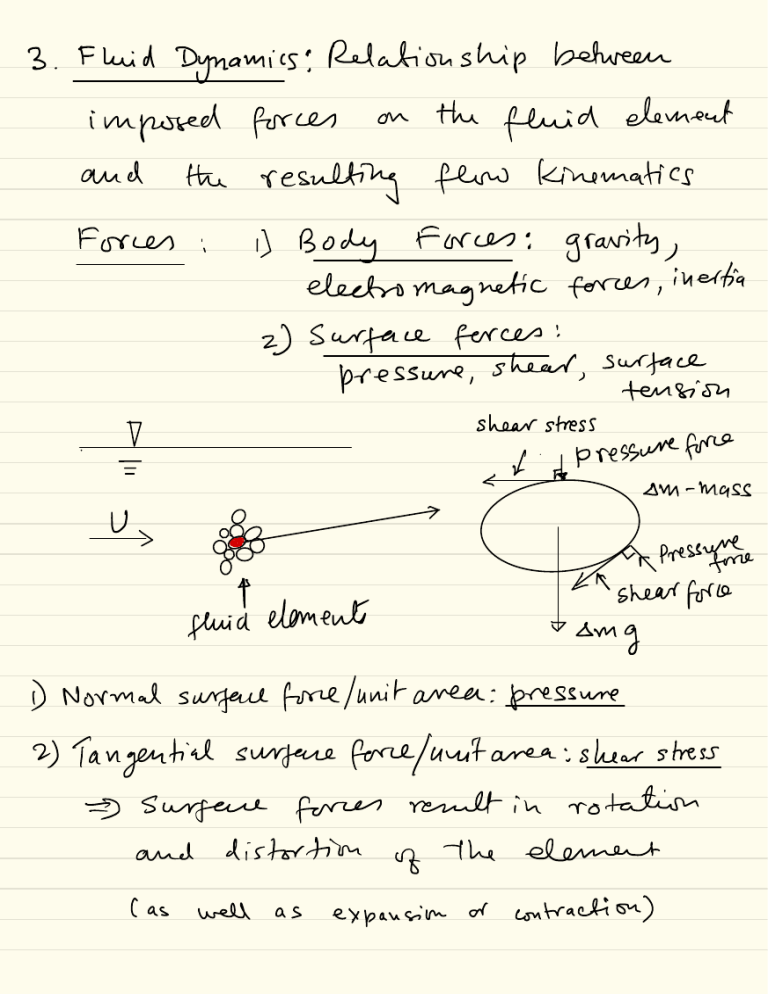 3. Fluid Dynamics: Relationship between
imposed forces on the fluid element
and the resulting flow kinematics
Forces: 1) Body Forces: gravity,
electromagnetic forces, inertia
2) Surface forces:
pressure, shear, surface
tension
shear stress
pressure force
Δm-mass
U
Pressure
force
shear force
fluid element
Δmg
1) Normal surface force/unit area: pressure
2) Tangential surface force/unit area: shear stress
⇒ Surface forces result in rotation
and distortion of the element
(as well as expansion or contraction)